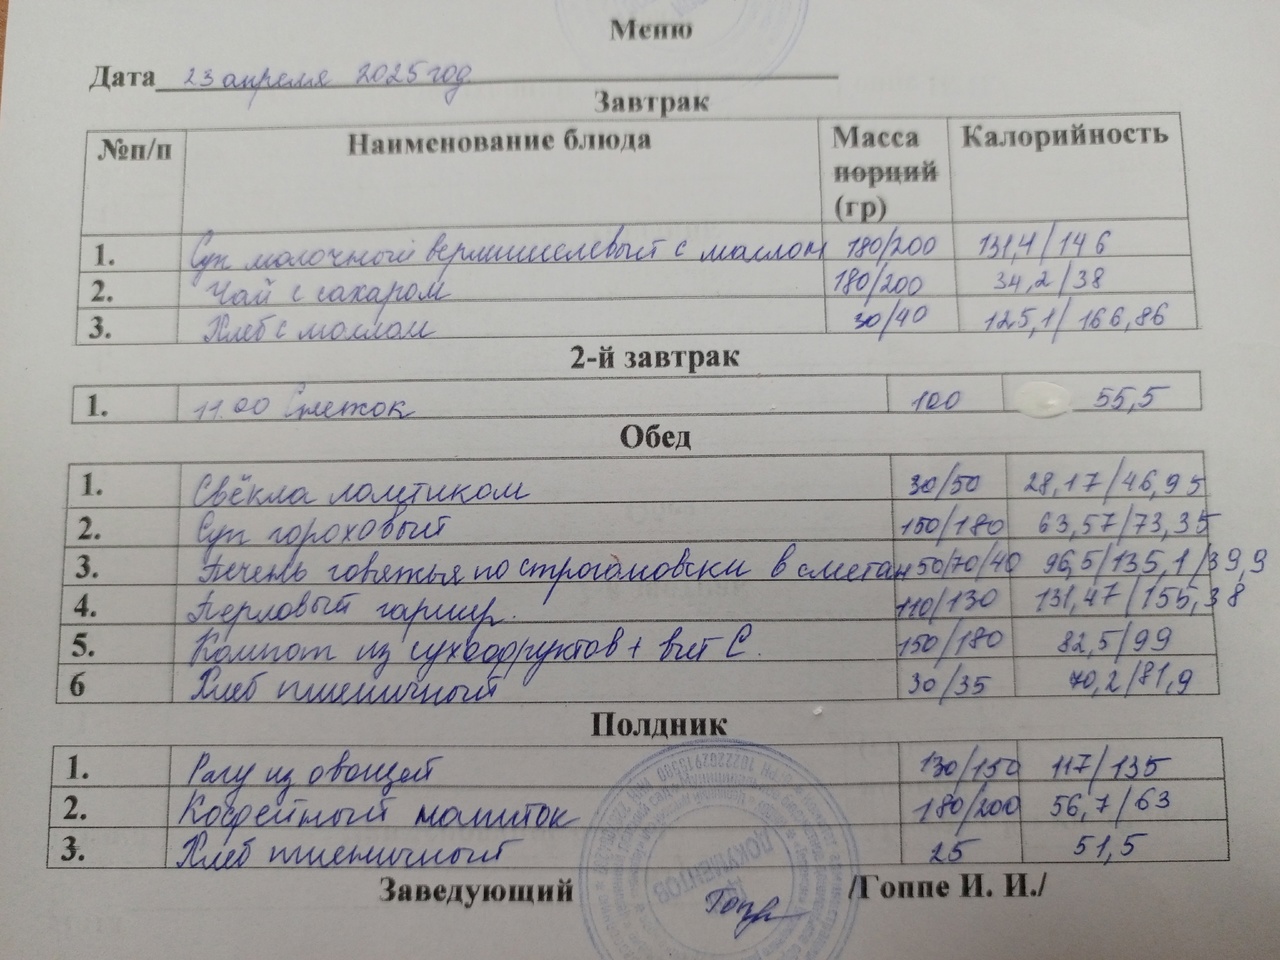 Меню
Дата 23 апреля 2025 год
Завтрак
№п/п Наименование блюда Масса порций (гр) Калорийность
1. Суп молочный вермишелевый с маслом 180/200 131,4/146
2. Чай с сахаром 180/200 34,2/38
3. Хлеб с маслом 30/40 125,1/166,86
2-й завтрак
1. 11.00 Снежок 100 55,5
Обед
1. Свёкла ломтиком 30/50 28,17/46,95
2. Суп гороховый 150/180 63,57/73,35
3. Печень говяжья по строгановски в сметан 50/70/40 96,5/135,1/39,9
4. Перловый гарнир. 110/130 131,47/155,38
5. Компот из сухофруктов + вит С. 150/180 82,5/99
6 Хлеб пшеничный 30/35 70,2/81,9
Полдник
1. Рагу из овощей 130/150 117/135
2. Кофейный напиток 180/200 56,7/63
3. Хлеб пшеничный 25 51,5
Заведующий /Гоппе И. И./
ДОКУМЕНТОВ